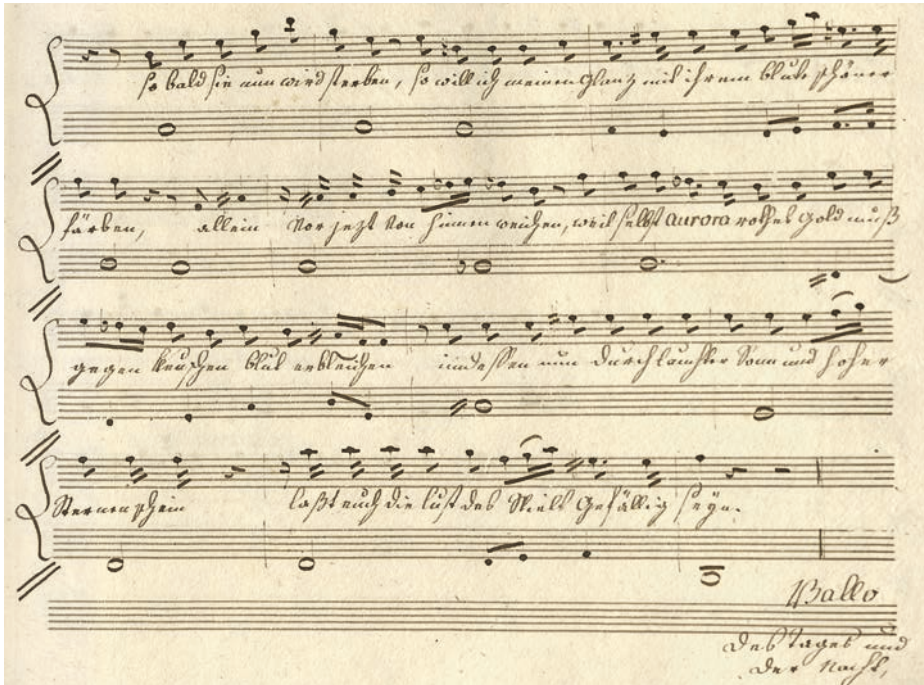 so bald sie nun wird sterben, so will ich meinen glantz mit ihrem blute schöner
färben, allein vor jezt von hinnen weichen, weil selbst aurora rothes gold muß
gegen keuschen blut erbleichen indessen nun durchlauchte Sonn und hoher
Sternenschein laßt euch die lust des Spiels gefällig seyn.
Ballo
des tages und
der Nacht,